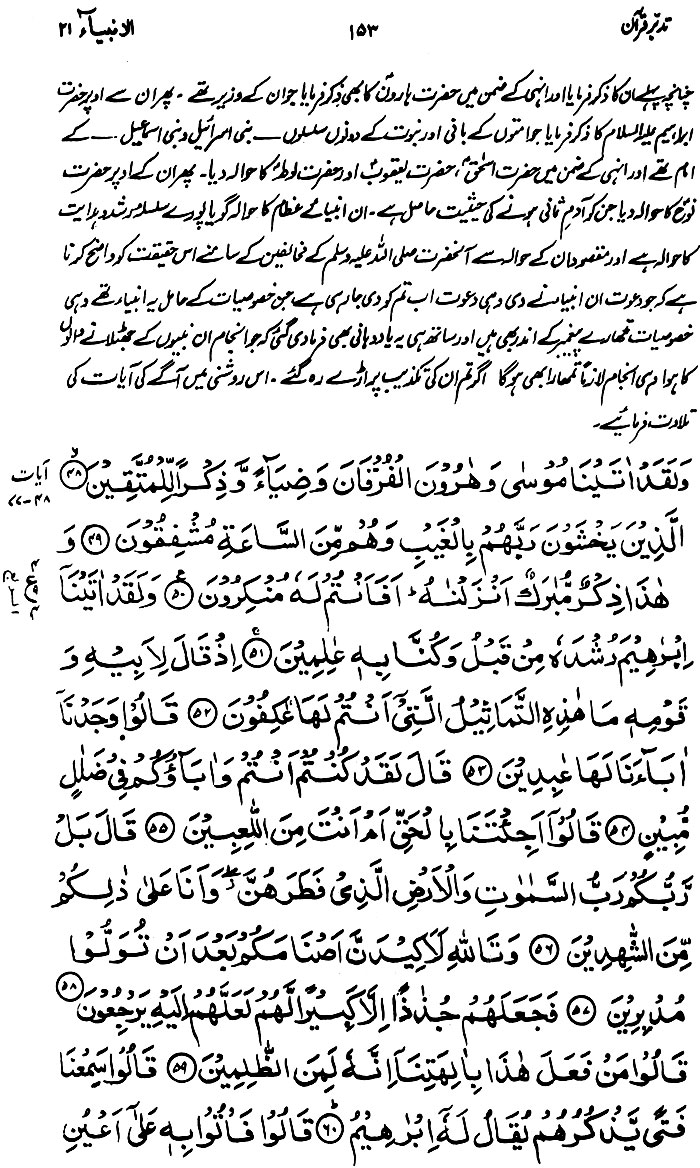 تدبرِ قرآن ۱۵۳ الانبیاء ۲۱
چنانچہ پہلے ان کا ذکر فرمایا اور انہی کے ضمن میں حضرت ہارونؑ کا بھی ذکر فرمایا جو ان کے وزیر تھے۔ پھر ان سے اوپر حضرت
ابراہیم علیہ السلام کا ذکر فرمایا جو امتوں کے بانی اور نبوت کے دونوں سلسلوں — بنی اسرائیل و بنی اسماعیل — کے
امام تھے اور انہی کے ضمن میں حضرت اسحٰقؑ، حضرت یعقوبؑ اور حضرت لوطؑ کا حوالہ دیا۔ پھر ان کے اوپر حضرت
نوحؑ کا حوالہ دیا جن کو آدمِ ثانی ہونے کی حیثیت حاصل ہے۔ ان انبیائے عظام کا حوالہ گویا پورے سلسلۂ رشد و ہدایت
کا حوالہ ہے اور مقصود ان کے حوالہ سے آنحضرت صلی اللہ علیہ وسلم کے مخالفین کے سامنے اس حقیقت کو واضح کرنا
ہے کہ جو دعوت ان انبیاء نے دی وہی دعوت اب تم کو دی جا رہی ہے، جن خصوصیات کے حامل یہ انبیاء تھے وہی
خصوصیات تمہارے پیغمبر کے اندر بھی ہیں اور ساتھ ہی یہ یاددہانی بھی فرما دی گئی کہ جو انجام ان نبیوں کے جھٹلانے والوں
کا ہوا وہی انجام لازماً تمہارا بھی ہوگا اگر تم ان کی تکذیب پر اڑے رہ گئے۔ اس روشنی میں آگے کی آیات کی
تلاوت فرمائیے۔
وَلَقَدْ اٰتَيْنَا مُوْسٰى وَهٰرُوْنَ الْفُرْقَانَ وَضِيَآءً وَّذِكْرًا لِّلْمُتَّقِيْنَ ﴿۴۸﴾ آیات
۴۸-۷۷
الَّذِيْنَ يَخْشَوْنَ رَبَّهُمْ بِالْغَيْبِ وَهُمْ مِّنَ السَّاعَةِ مُشْفِقُوْنَ ﴿۴۹﴾ وَ
هٰذَا ذِكْرٌ مُّبٰرَكٌ اَنْزَلْنٰهُ ؕ اَفَاَنْتُمْ لَهٗ مُنْكِرُوْنَ ﴿۵۰﴾ وَلَقَدْ اٰتَيْنَآ
اِبْرٰهِيْمَ رُشْدَهٗ مِنْ قَبْلُ وَكُنَّا بِهٖ عٰلِمِيْنَ ﴿۵۱﴾ اِذْ قَالَ لِاَبِيْهِ وَ
قَوْمِهٖ مَا هٰذِهِ التَّمَاثِيْلُ الَّتِىْٓ اَنْتُمْ لَهَا عٰكِفُوْنَ ﴿۵۲﴾ قَالُوْا وَجَدْنَآ
اٰبَآءَنَا لَهَا عٰبِدِيْنَ ﴿۵۳﴾ قَالَ لَقَدْ كُنْتُمْ اَنْتُمْ وَاٰبَآؤُكُمْ فِىْ ضَلٰلٍ
مُّبِيْنٍ ﴿۵۴﴾ قَالُوْٓا اَجِئْتَنَا بِالْحَقِّ اَمْ اَنْتَ مِنَ اللّٰعِبِيْنَ ﴿۵۵﴾ قَالَ بَلْ
رَّبُّكُمْ رَبُّ السَّمٰوٰتِ وَالْاَرْضِ الَّذِىْ فَطَرَهُنَّ ۖ وَاَنَا عَلٰى ذٰلِكُمْ
مِّنَ الشّٰهِدِيْنَ ﴿۵۶﴾ وَتَاللّٰهِ لَاَكِيْدَنَّ اَصْنَامَكُمْ بَعْدَ اَنْ تُوَلُّوْا
مُدْبِرِيْنَ ﴿۵۷﴾ فَجَعَلَهُمْ جُذٰذًا اِلَّا كَبِيْرًا لَّهُمْ لَعَلَّهُمْ اِلَيْهِ يَرْجِعُوْنَ ﴿۵۸﴾
قَالُوْا مَنْ فَعَلَ هٰذَا بِاٰلِهَتِنَآ اِنَّهٗ لَمِنَ الظّٰلِمِيْنَ ﴿۵۹﴾ قَالُوْا سَمِعْنَا
فَتًى يَّذْكُرُهُمْ يُقَالُ لَهٗٓ اِبْرٰهِيْمُ ﴿۶۰﴾ قَالُوْا فَاْتُوْا بِهٖ عَلٰٓى اَعْيُنِ